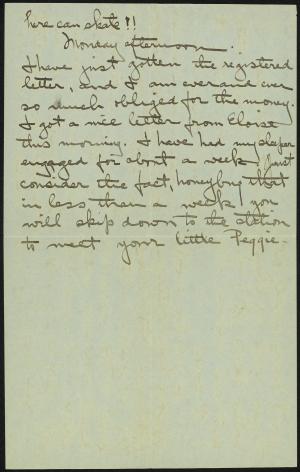 here can skate!!
Monday afternoon.
I have just gotten the registered
letter, and I am ever and ever
so much obliged for the money.
I got a nice letter from Eloise
this morning. I have had my sleeper
engaged for about a week! Just
consider the fact, honeybug that
in less than a week, you
will skip down to the station
to meet your little Peggie-